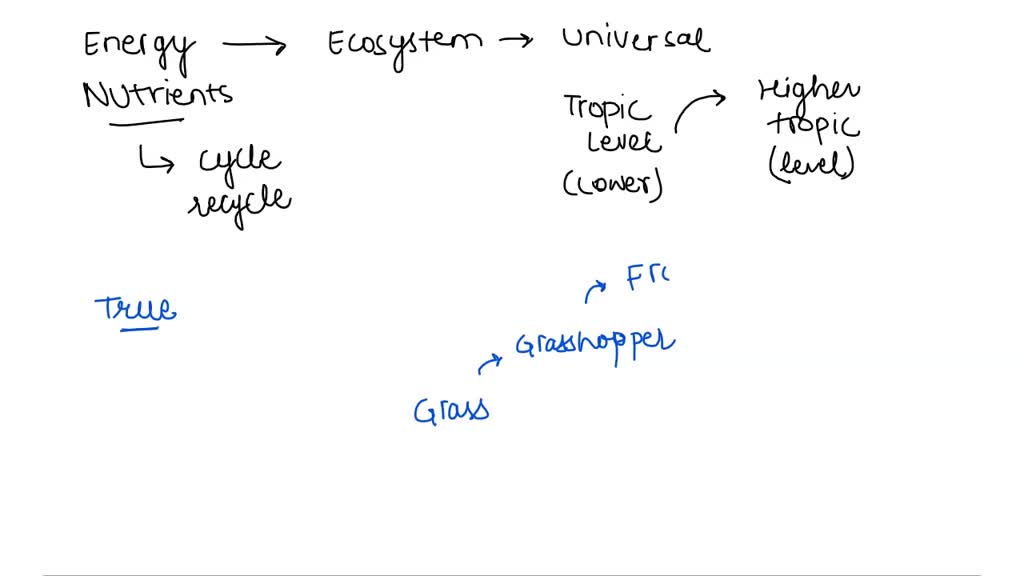 Energy → Ecosystem → Universal
Nutrients
↳ cycle
recycle
Tropic
Level
(Lower)
Higher
tropic
(level)
True
Fro
Grasshopper
Grass